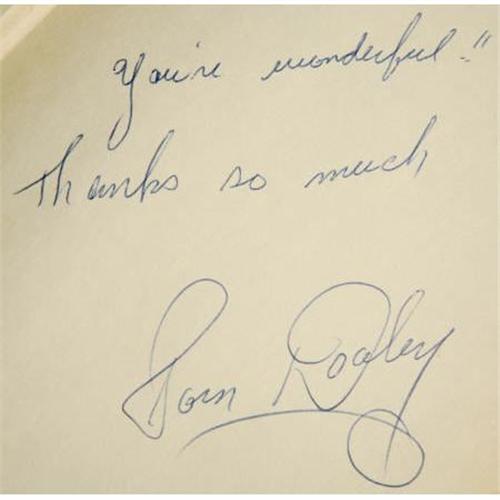 You're wonderful!!
Thanks so much
Tom Dooley